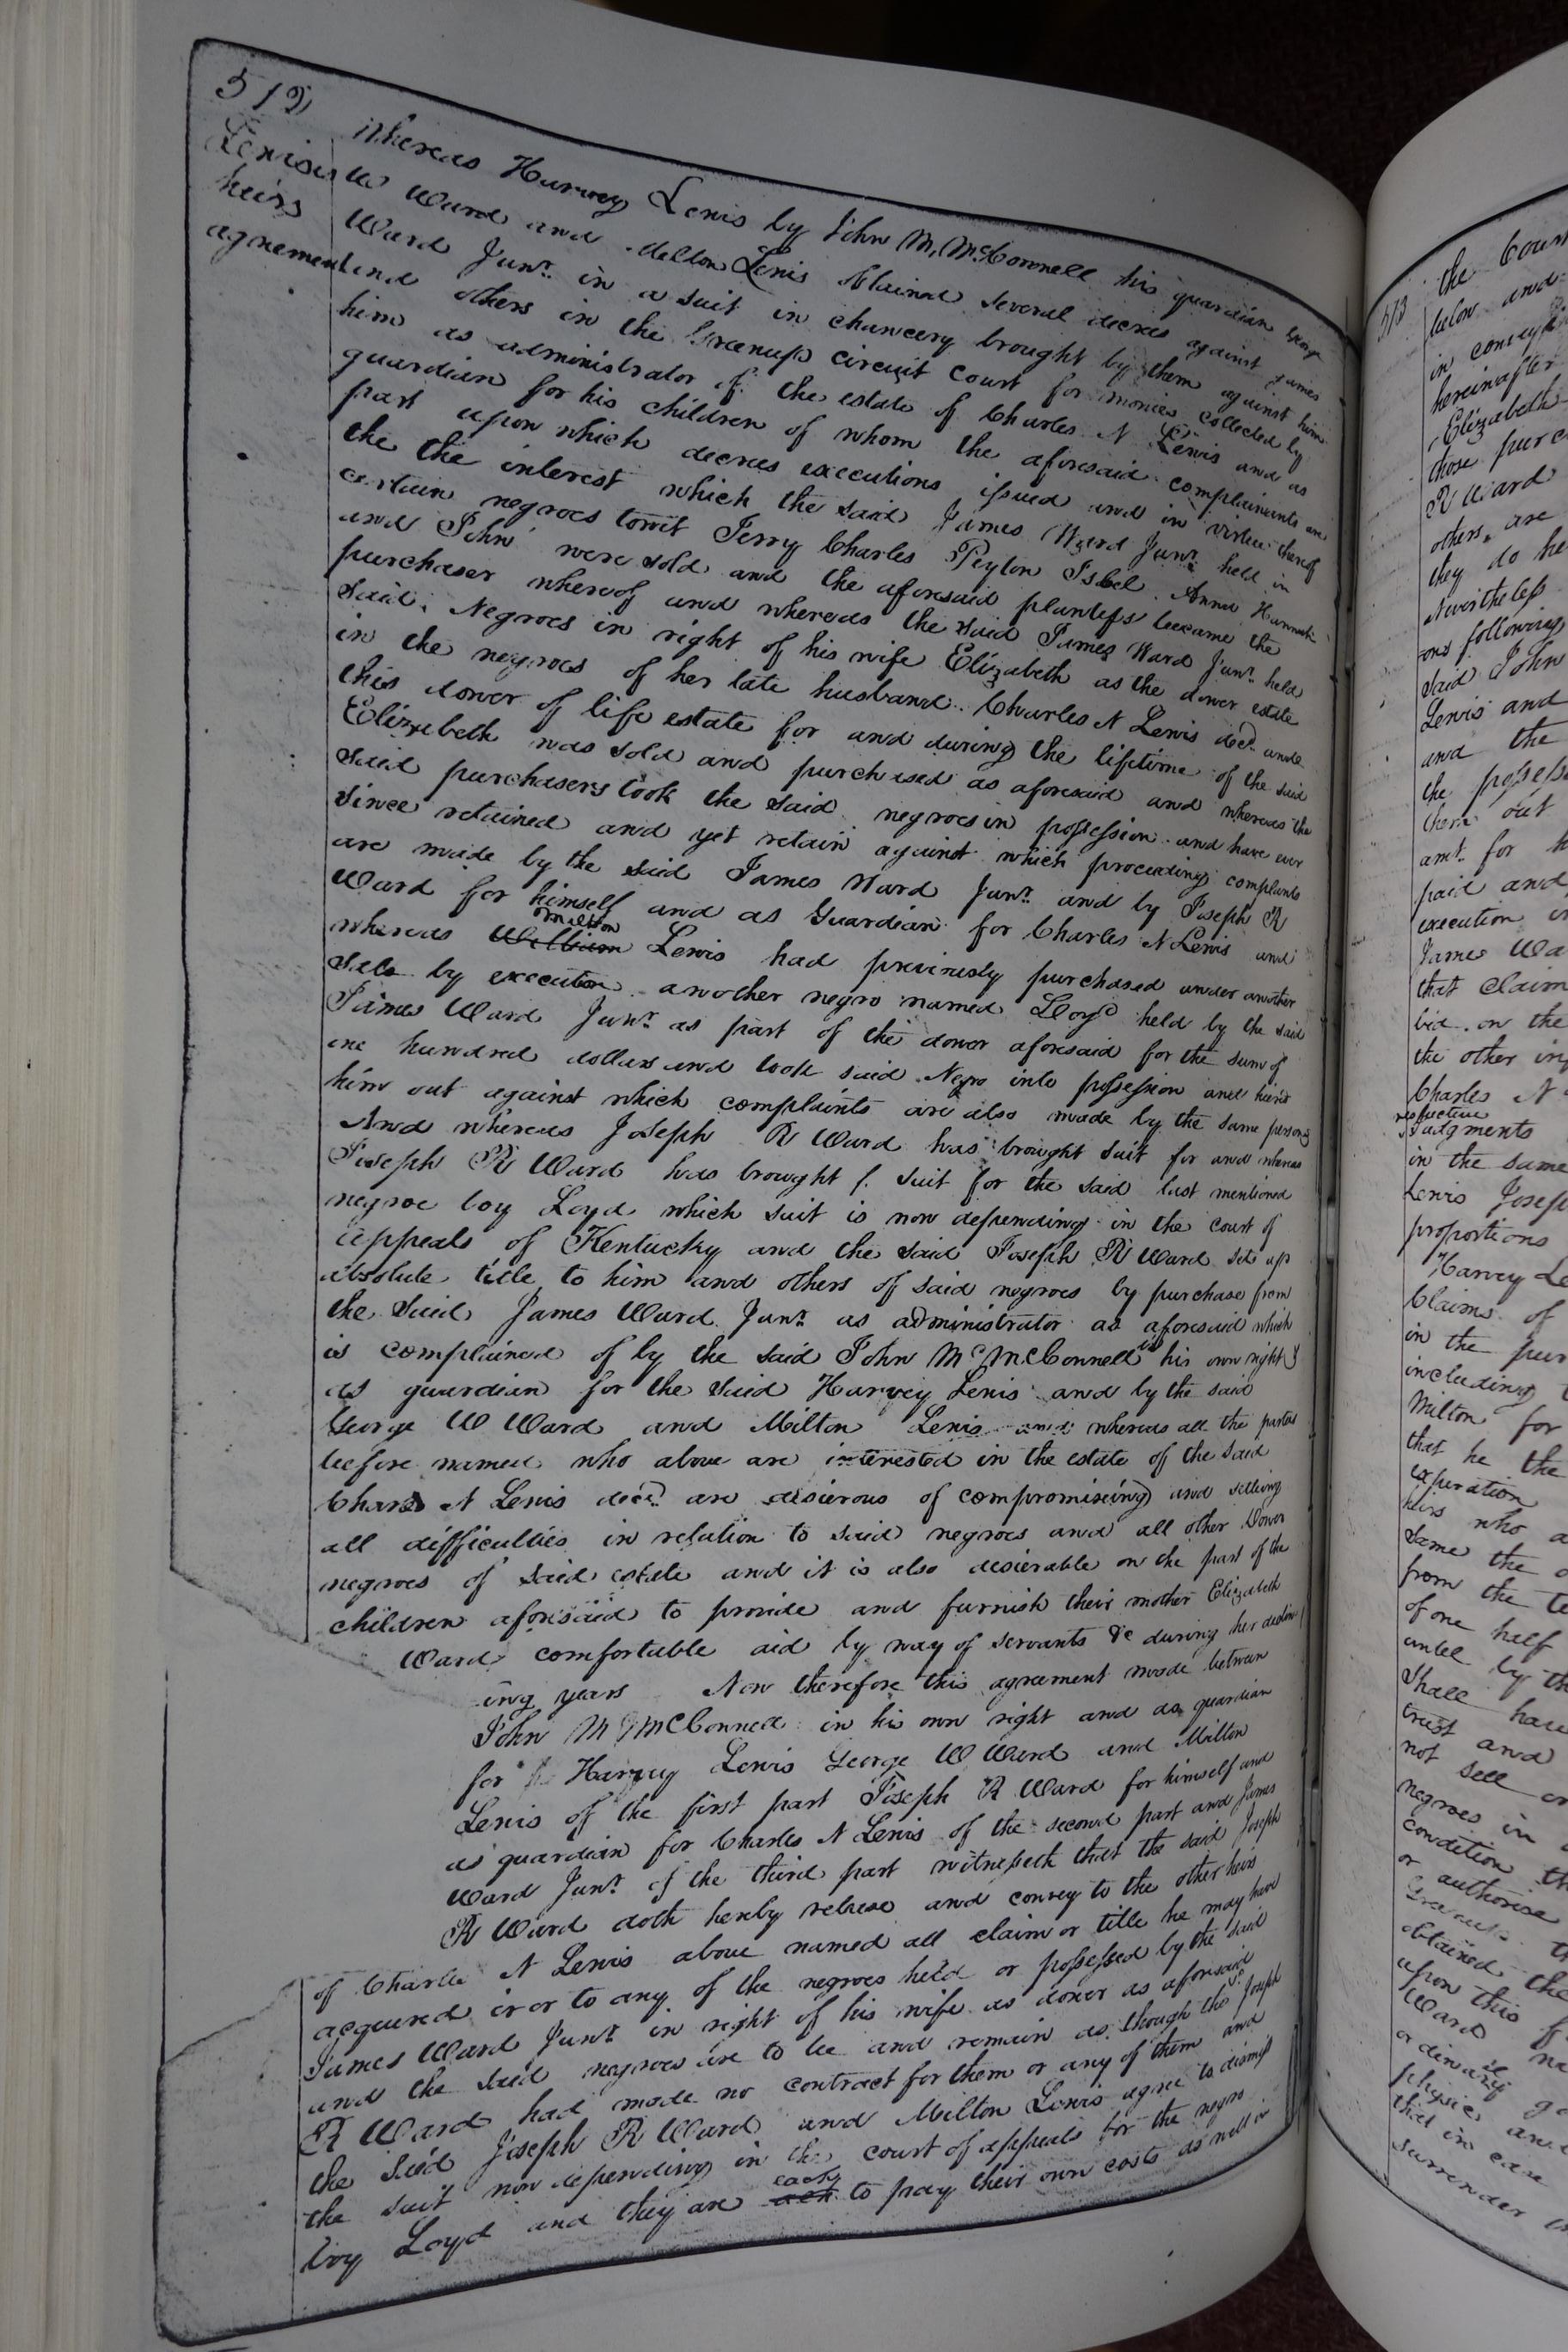 512
Lewises
heirs
agreement
Whereas Harvey Lewis by John M. McConnell his guardian George
W Ward and Milton Lewis obtained several decrees against James
Ward Junr. in a suit in chancery brought by them against him
and others in the Greenup circuit court for monies collected by
him as administrator of the estate of Charles N Lewis and as
guardian for his children of whom the aforesaid complainants are
part upon which decrees executions issued and in virtue thereof
the the interest which the said James Ward Junr. held in
certain negroes towit Terry Charles Peyton Isbel Anna Hannah
and John were sold and the aforesaid plantiffs became the
purchaser whereof and whereas the said James Ward Junr. held
said Negroes in right of his wife Elizabeth as the dower estate
in the negroes of her late husband Charles N Lewis decd. and
this dower of life estate for and during the lifetime of the said
Elizebeth was sold and purchased as aforesaid and whereas the
said purchasers took the said negroes in possession and have ever
since retained and yet retain against which proceeding complaints
are made by the said James Ward Junr. and by Joseph R
Ward for himself and as Guardian for Charles N Lewis and
whereas William Milton Lewis had previously purchased under another
sale by execution another negro named Loyd held by the said
James Ward Junr. as part of the dower aforesaid for the sum of
one hundred dollars and took said Negro into possession and hired
him out against which complaints are also made by the same persons
And whereas Joseph R Ward has brought suit for and whereas
Joseph R Ward has brought suit for the said last mentioned
negroe boy Loyd which suit is now depending in the court of
Appeals of Kentucky and the said Joseph R Ward sets up
absolute title to him and others of said negroes by purchase from
the said James Ward Junr. as administrator as aforesaid which
is complained of by the said John Mc McConnell in his own right &
as guardian for the said Harvey Lewis and by the said
George W Ward and Milton Lewis and whereas all the parties
before named who above are interested in the estate of the said
Charls N Lewis decd. are desierous of compromiseing and settling
all difficulties in relation to said negroes and all other Dower
negroes of said estate and it is also desierable on the part of the
children aforesaid to provide and furnish their mother Elizabeth
Ward comfortable aid by way of servants &c during her declin
ing years Now therefore this agreement made between
John M McConnell in his own right and as guardian
for Harvey Lewis George W Ward and Milton
Lewis of the first part Joseph R Ward for himself and
as guardian for Charles N Lewis of the second part and James
Ward Junr. of the third part witnesseth that the said Joseph
R Ward doth hereby release and convey to the other heirs
of Charles N Lewis above named all claim or title he may have
acquired in or to any of the negroes held or possessed by the said
James Ward Junr. in right of his wife as dower as aforesaid
and the said negroes are to be and remain as though the sd. Joseph
R Ward had made no contract for them or any of them and
the said Joseph R Ward and Milton Lewis agree to dismiss
the suit now depending in the court of appeals for the negro
boy Loyd and they are each to pay their own costs as well in
513
the Coun
below and
in conveyi
hereinafter
Elizabeth
those purc
R Ward
others are
they do he
Nevertheless
ons following
said John
Lewis and
and the
the possess
them out
amt. for h
paid and
execution
James Wa
that claim
bid on the
the other in
Charles N
respective
Judgments
in the same
Lewis Josep
proportions
Harvey Le
Claims of
in the pur
including
Milton for
that he the
expiration
hirs who a
same the
from the te
of one half
untel by th
Shall hav
trust and
not sell or
negroes in
condition th
or authorise
obtained the
upon this
Ward
ordinary
physic and
that in case
surrender